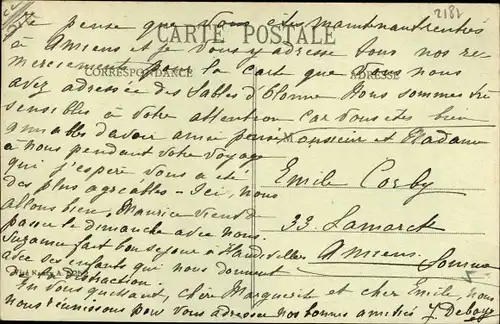 2187
Je pense que vous êtes maintenant rentrés
CARTE POSTALE
à Amiens et je vous y adresse tous nos re
merciements pour la cart que vous nous
CORRESPONDANCE
ADRESSE
avez adressée des Sables d'Olonne Nous sommes très
sensibles à votre attention car vous êtes bien
aimables d'avoir ainsi pensé
à nous pendant votre voyage
qui j'espère vous a été
des plus agréables - Ici, nous
allons bien, Maurice vient
passer le dimanche avec nous.
Suzanne fait bon séjour à
avec ses enfants qui nous donnent
distraction.
En vous quittant, chère Marguerit et cher Emile, nous
nous réunissons pour vous adresser nos bonnes amitiés
Monsieur et Madame
Emile Cosby
33. Lamarck
Amiens.
Somme